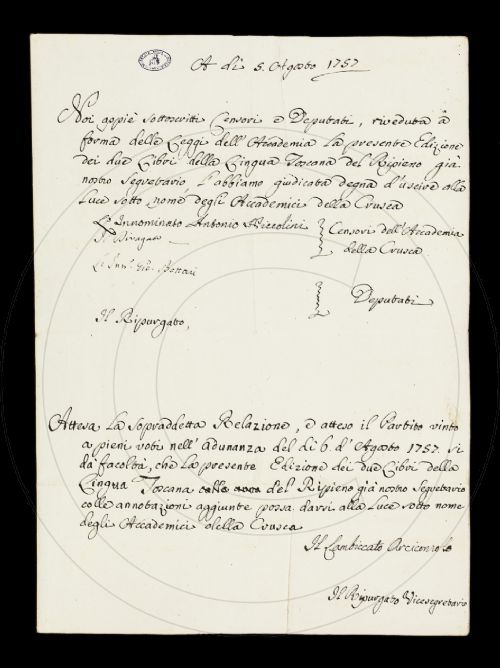 A dì 5. Agosto 1757
Noi appiè sottoscritti Censori e Deputati, riveduta a
forma delle Leggi dell'Accademia La presente Edizione
dei due Libri della Lingua Toscana del Ripieno già
nostro Segretario, l'abbiamo giudicata degna d'uscire alla
Luce sotto nome degli Accademici della Crusca
L'Innominato Antonio Niccolini
Censori dell'Accademia
della Crusca
Il Divagato
L'Inn.º Gio. Bottari
Deputati
Il Ripurgato,
Attesa La sopraddetta Relazione, e atteso il Partito vinto
a pieni voti nell'adunanza del dì 6. d'Agosto 1757. si
dà facoltà, che La presente Edizione dei due Libri della
Lingua Toscana del Ripieno già nostro Segretario
colle annotazioni aggiunte possa darsi alla Luce sotto nome
degli Accademici della Crusca
Il Lambiccato Arciconsolo
Il Ripurgato Vicesegretario